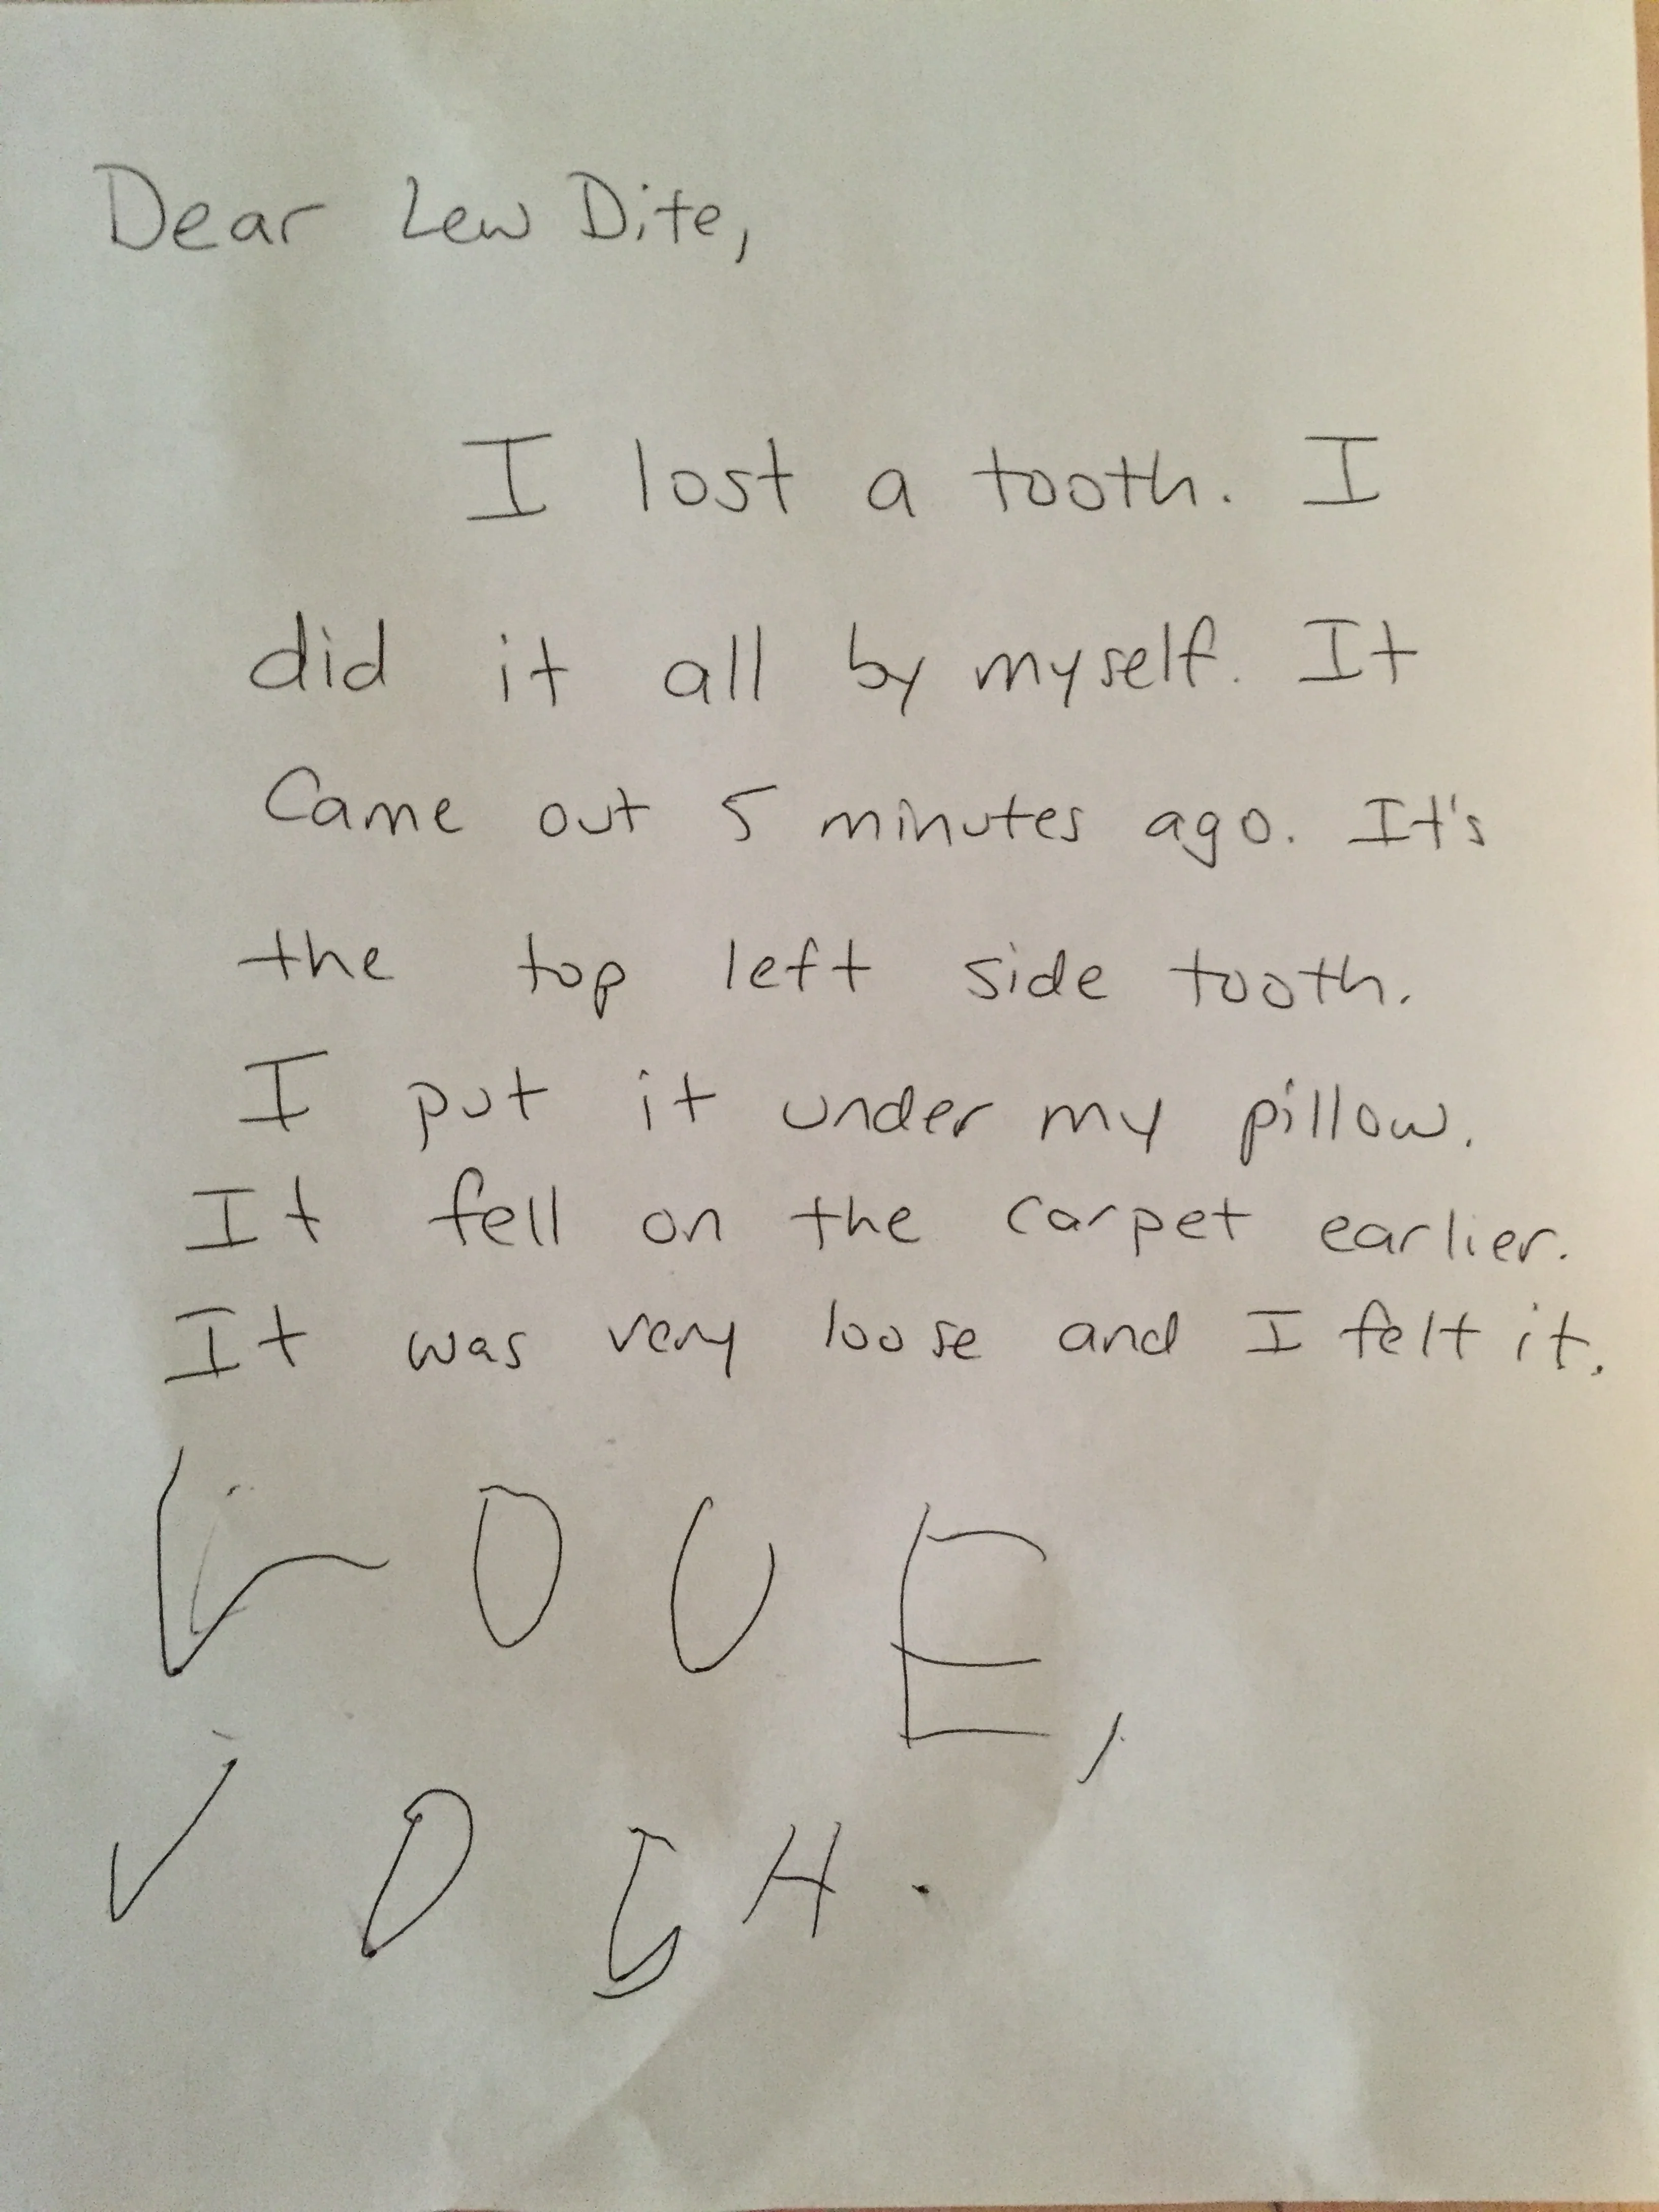 Dear Lew Dite,
I lost a tooth. I
did it all by myself. It
Came out 5 minutes ago. It's
the top left side tooth.
I put it under my pillow.
It fell on the carpet earlier.
It was very loose and I felt it.
LOUE,